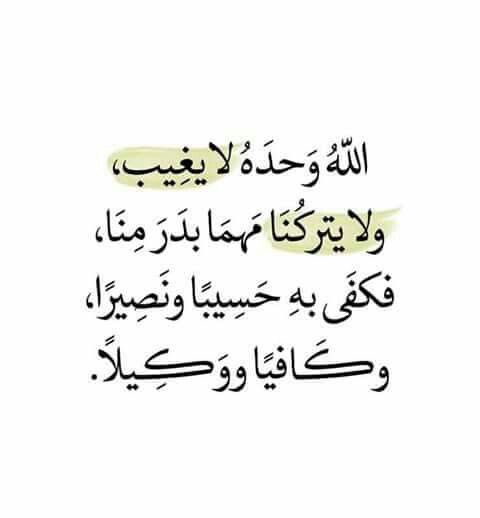 اللّٰهُ وَحدَهُ لا يغِيب،
ولا يتركُنَا مَهمَا بدَرَ مِنَا،
فكفَى بهِ حَسِيبًا ونَصِيرًا،
وكَافيًا ووَكِيلاً.